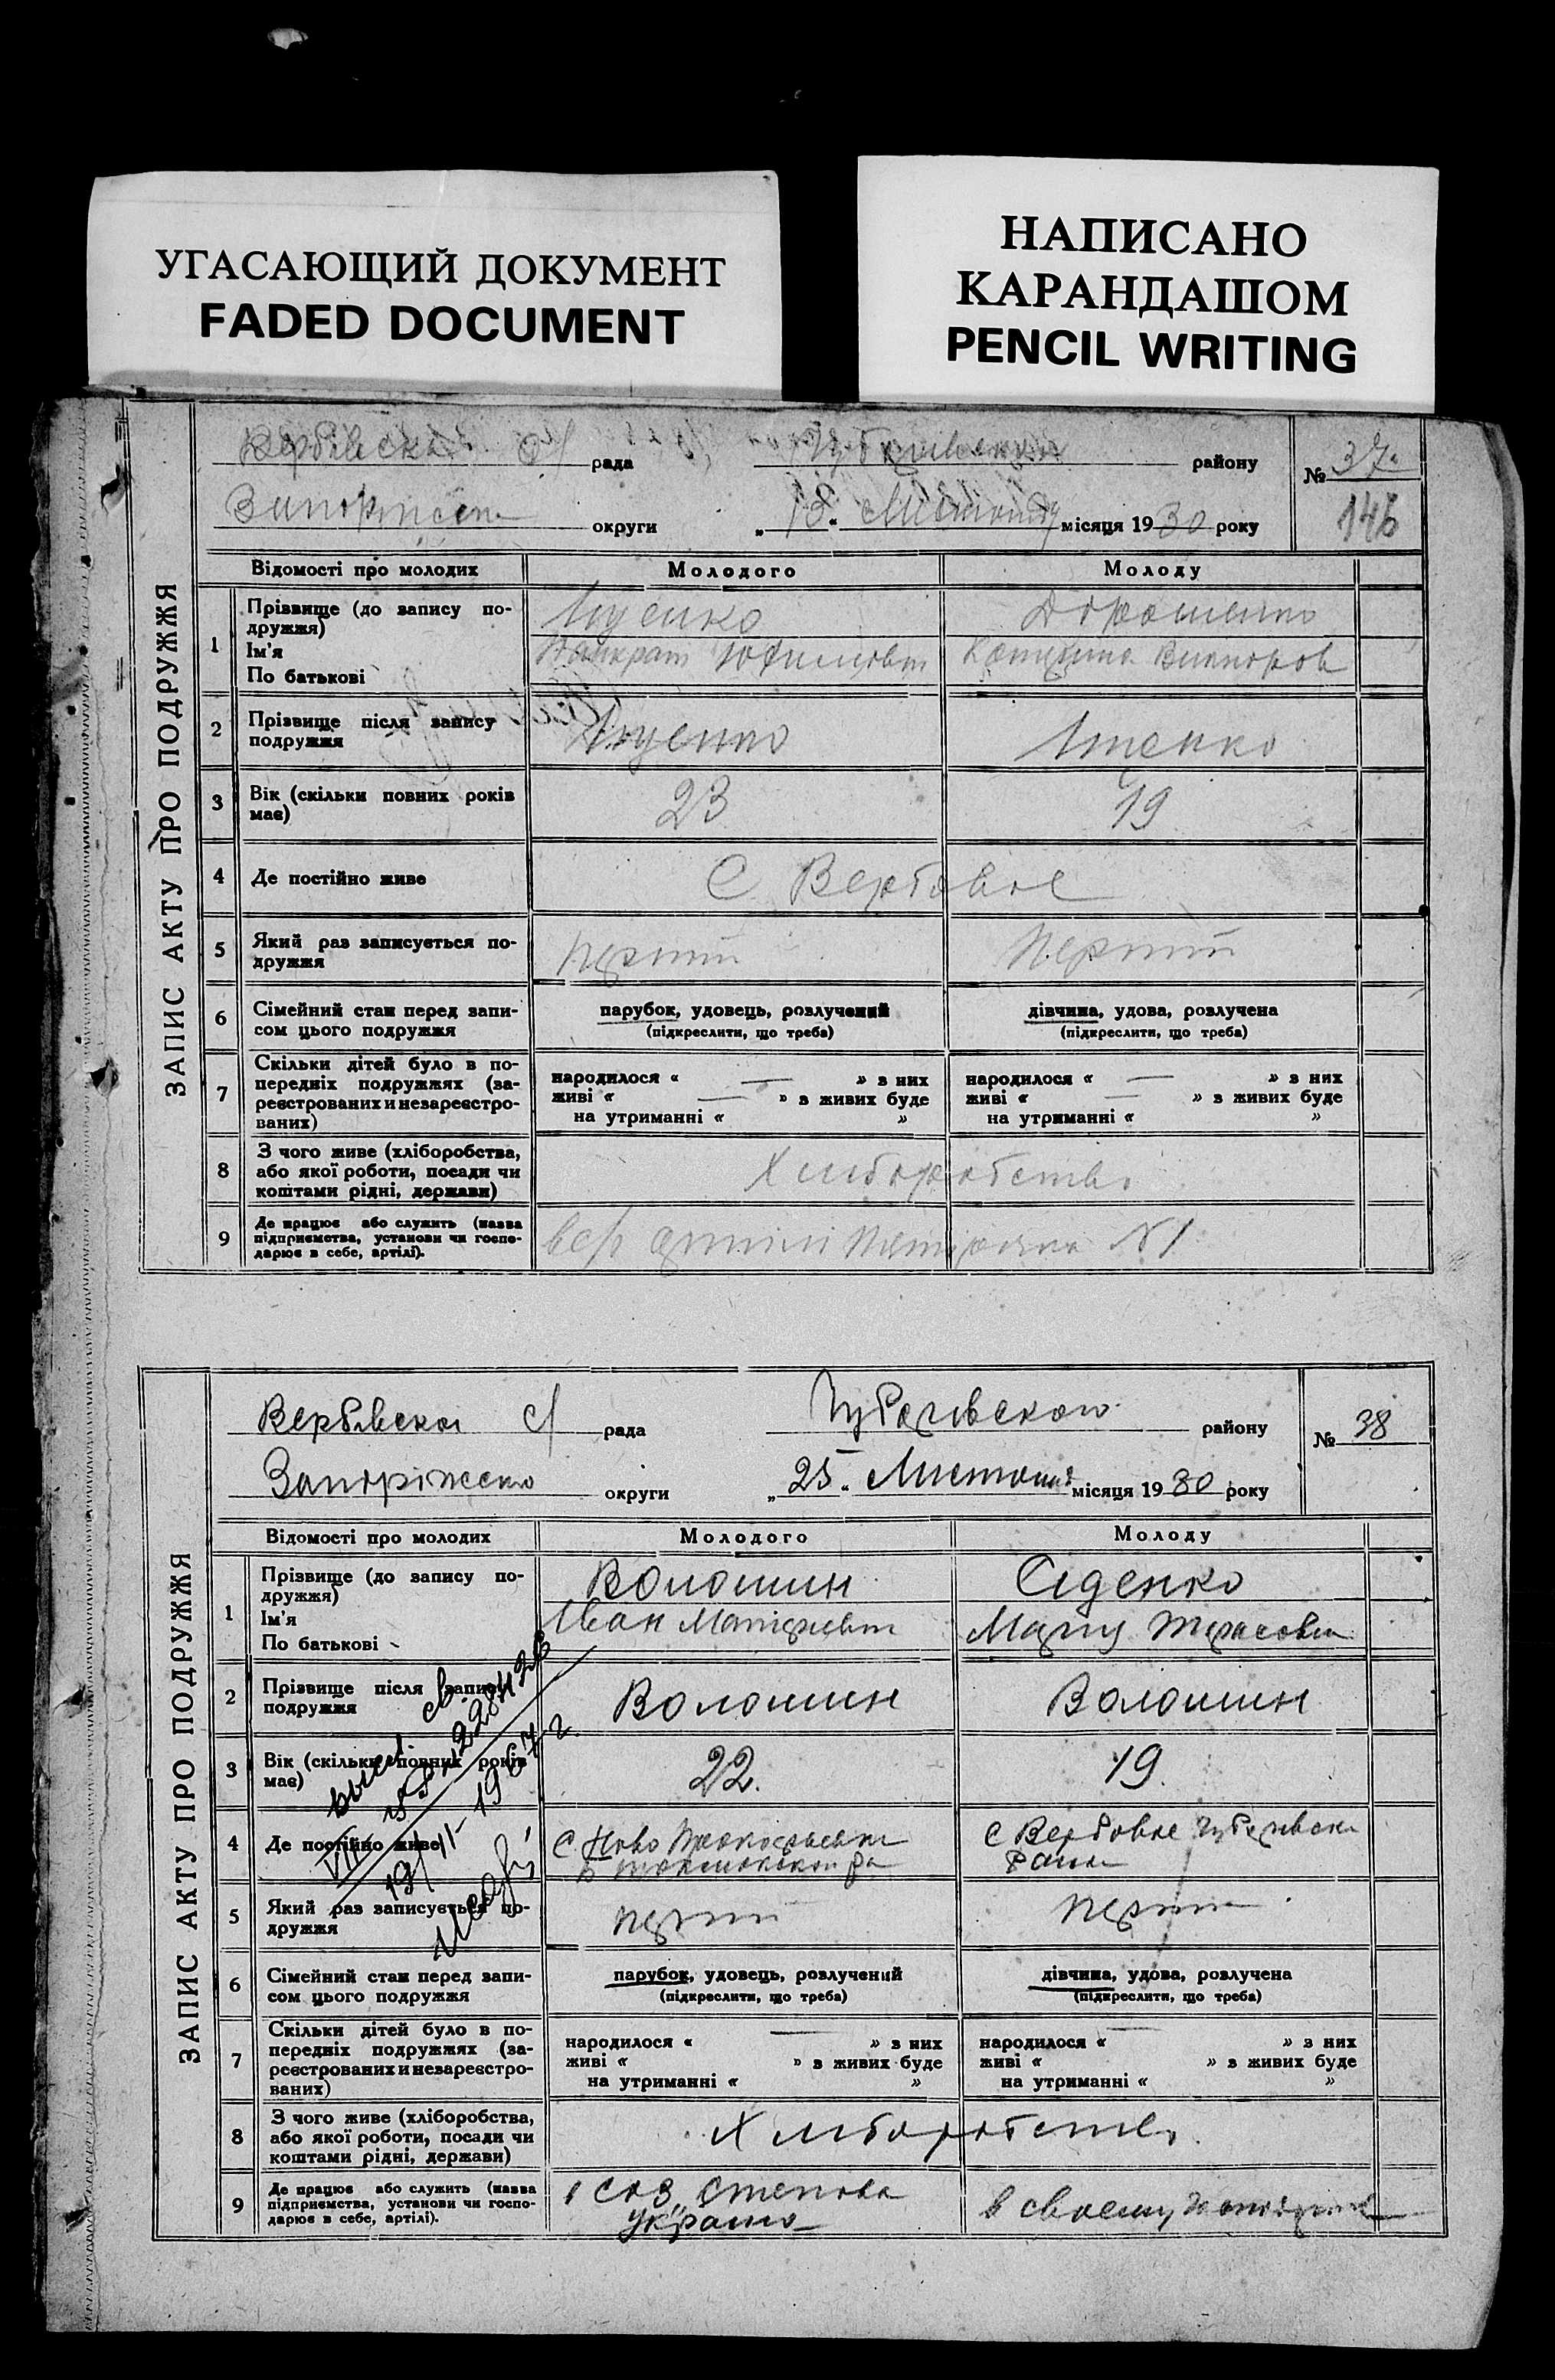 УГАСАЮЩИЙ ДОКУМЕНТ
FADED DOCUMENT
НАПИСАНО
КАРАНДАШОМ
PENCIL WRITING
ЗАПИС АКТУ ПРО ПОДРУЖЖЯ
рада району № 37
округи „ 18 “ місяця 19 30 року 146
Відомості про молодих Молодого Молоду
1 Прізвище (до запису по-
дружжя)
Ім'я
По батькові
Луценко Дорошенко
Панкрат Юхимович Катерина Викторов
2 Прізвище після запису
подружжя
Луценко
3 Вік (скільки повних років
має)
23 19
4 Де постійно живе С Вербовое
5 Який раз записується по-
дружжя
перший перший
6 Сімейний стан перед запи-
сом цього подружжя
парубок, удовець, розлучений
(підкреслити, що треба)
дівчина, удова, розлучена
(підкреслити, що треба)
7 Скільки дітей було в по-
передніх подружжях (за-
реєстрованих и незареєстро-
ваних)
народилося « — » з них
живі « — » з живих буде
на утриманні « »
народилося « — » з них
живі « — » з живих буде
на утриманні « »
8 З чого живе (хліборобства,
або якої роботи, посади чи
коштами рідні, держави)
Хліборобство
9 Де працює або служить (назва
підприємства, установи чи госпо-
дарює в себе, артілі).
№ 1
ЗАПИС АКТУ ПРО ПОДРУЖЖЯ
Вербівська с/ рада Чубарівського району № 38
Запоріжско округи „ 25 “ Листопад місяця 19 30 року
Відомості про молодих Молодого Молоду
1 Прізвище (до запису по-
дружжя)
Ім'я
По батькові
Волошин Сиденко
Іван Матвієвич Марія Тарасовна
2 Прізвище після запису
подружжя
Волошин Волошин
3 Вік (скільки повних років
має)
22. 19.
4 Де постійно живе
С Ново С Вербовое Чубарівски
района
5 Який раз записується по-
дружжя
перший перший
6 Сімейний стан перед запи-
сом цього подружжя
парубок, удовець, розлучений
(підкреслити, що треба)
дівчина, удова, розлучена
(підкреслити, що треба)
7 Скільки дітей було в по-
передніх подружжях (за-
реєстрованих и незареєстро-
ваних)
народилося « — » з них
живі « » з живих буде
на утриманні « »
народилося « — » з них
живі « » з живих буде
на утриманні « »
8 З чого живе (хліборобства,
або якої роботи, посади чи
коштами рідні, держави)
Хліборобство
9 Де працює або служить (назва
підприємства, установи чи госпо-
дарює в себе, артілі).
соз Степова
Україна
в своему